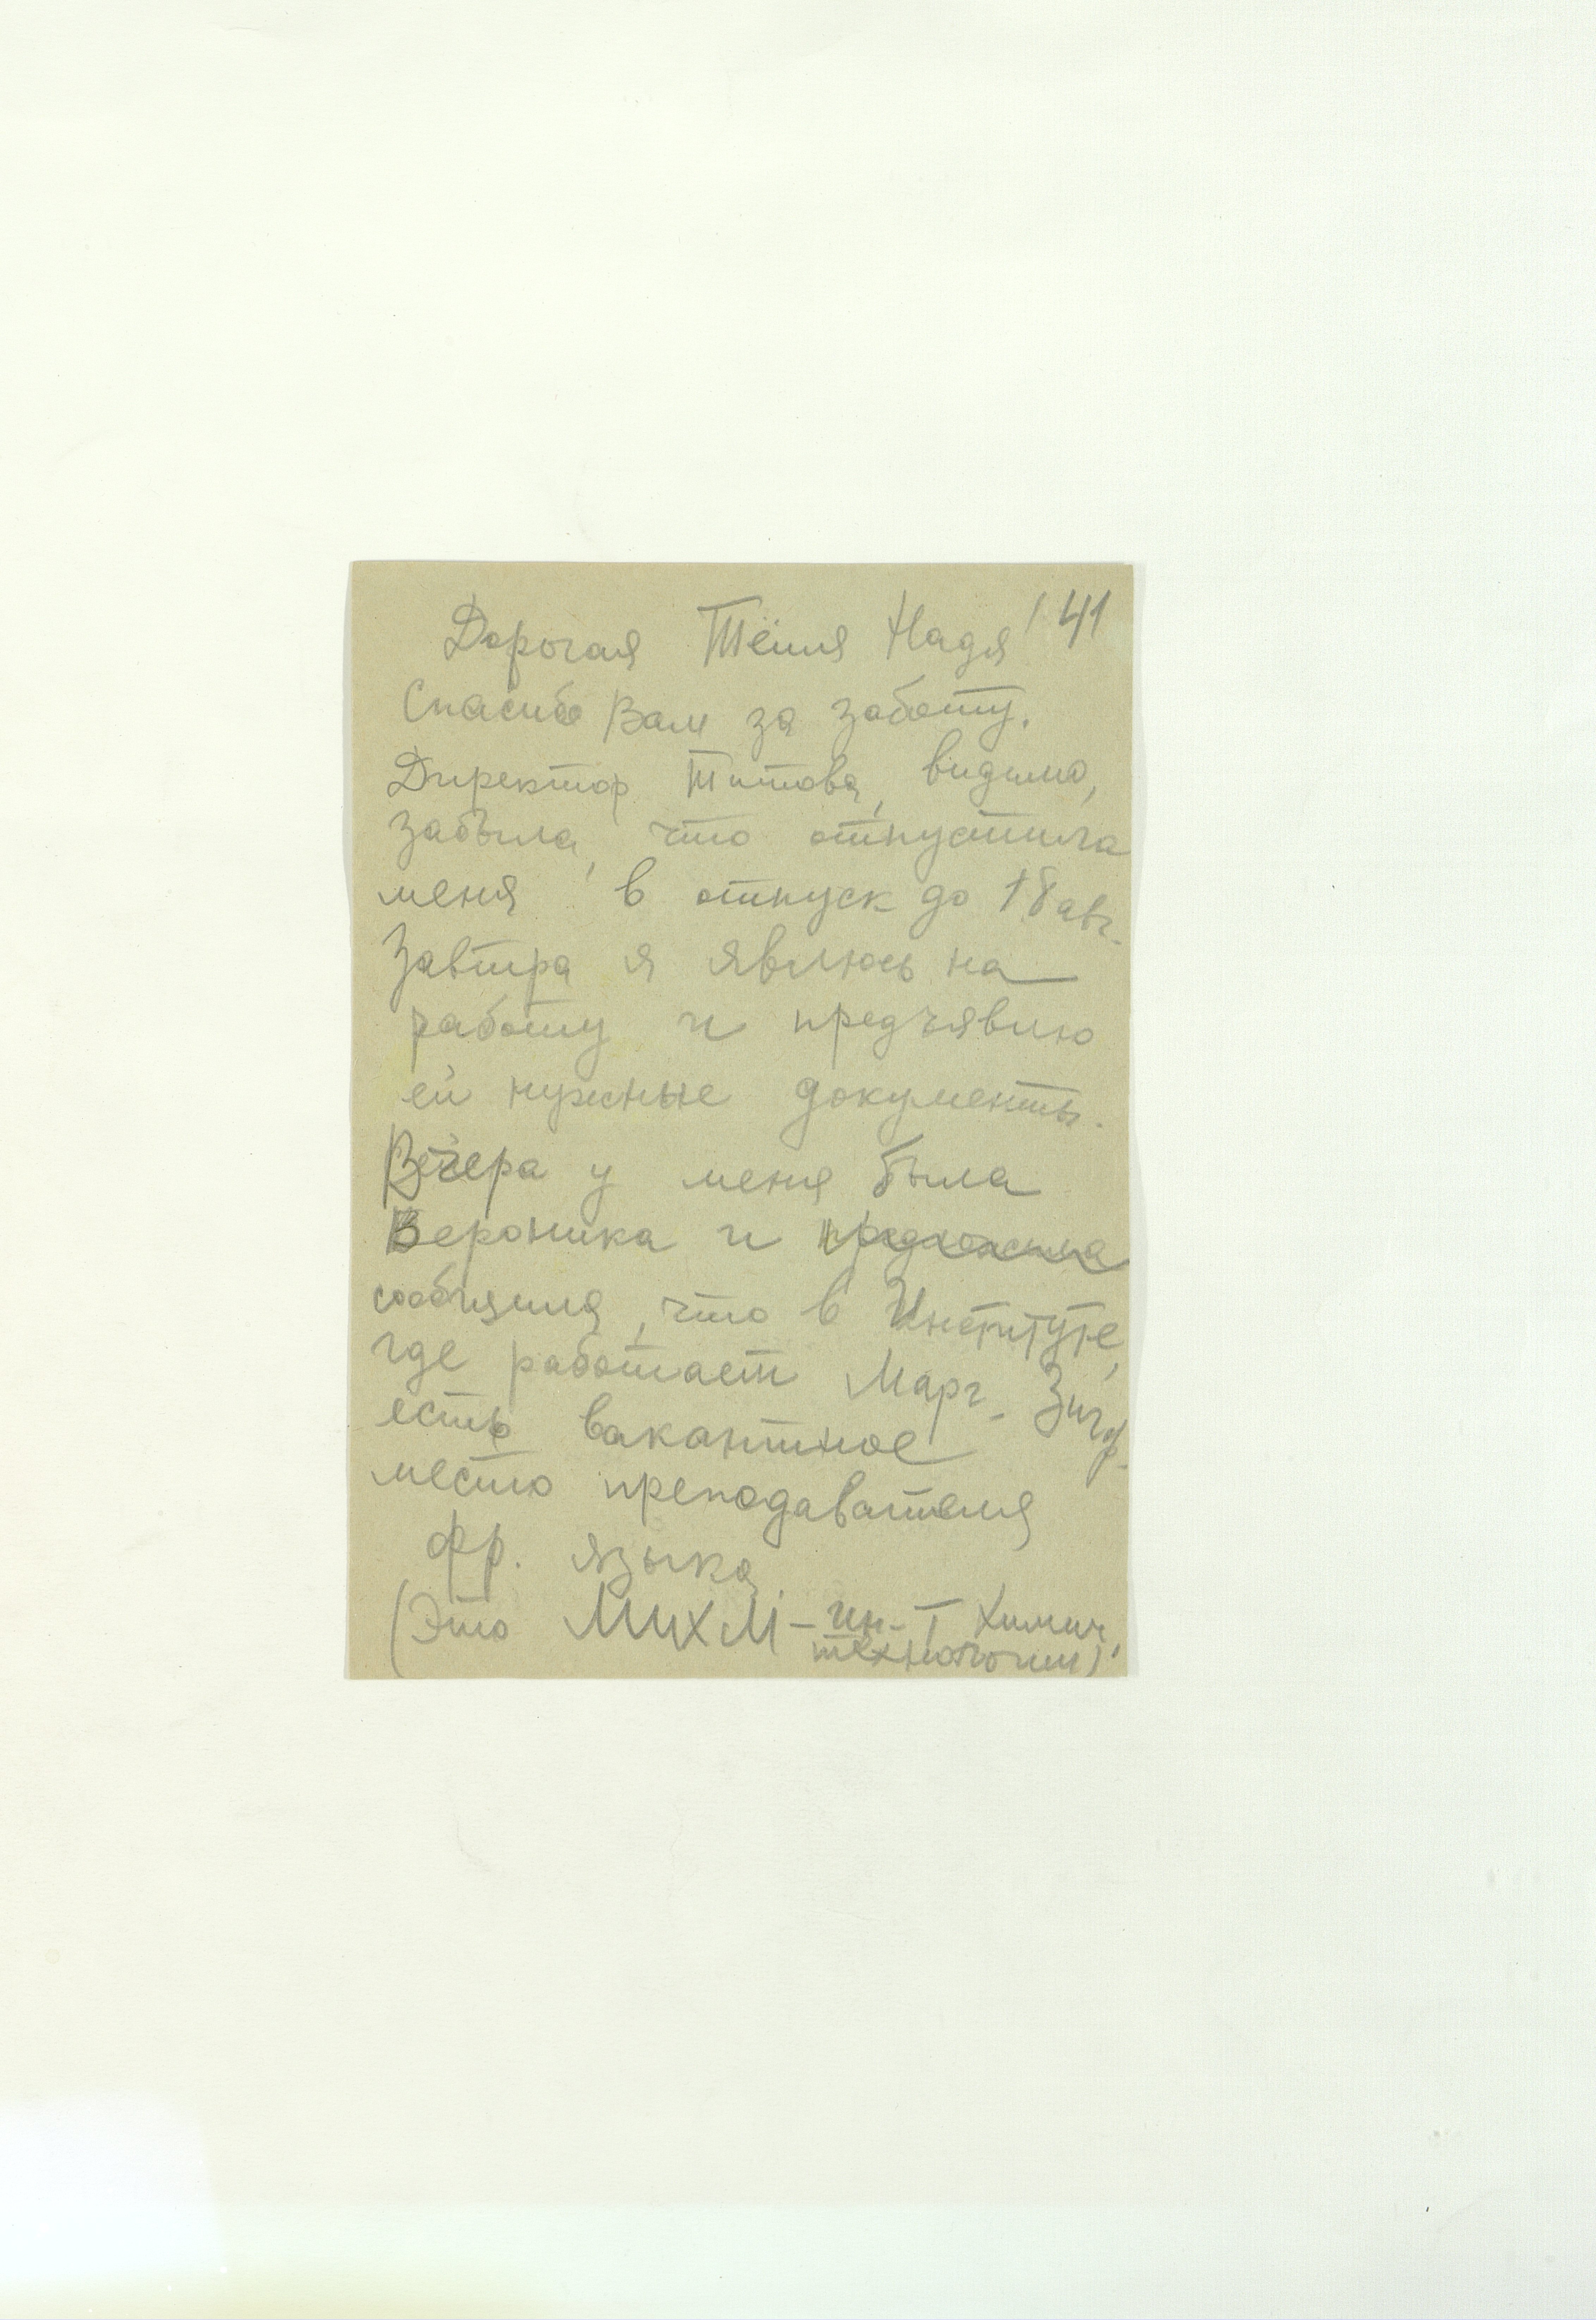 41
Дорогая Тётя Надя!
Спасибо Вам за заботу.
Директор Титова, видимо,
забыла, что отпустила
меня в отпуск до 18 авг.
Завтра я явлюсь на
работу и предъявлю
ей нужные документы.
Вчера у меня была
Вероника и предложила
сообщила, что в Институте,
где работает Марг. Зигф.
есть вакантное
место преподавателя
фр. языка
(Это МИХМ – ин-т химич.
технологии)